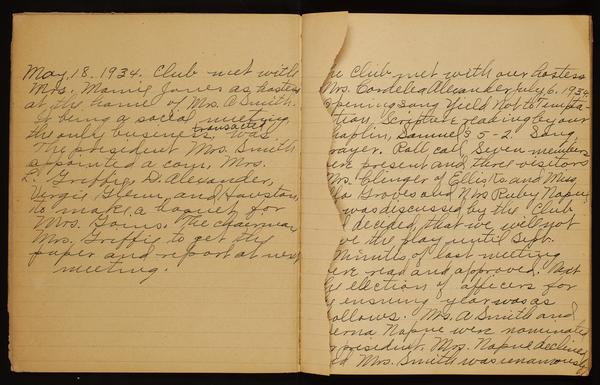 May, 18. 1934. Club met with
Mrs. Mamie Jones as hostess
at the home of Mrs. A Smith.
It being a social meeting
the only business transacted was
The president Mrs. Smith
appointed a com, Mrs.
L. Griffie, D. Alexander,
Virgie Glenn, and Houston,
to make a boquet for
Mrs. The chairman
Mrs. Griffie to get the
paper and report at next
meeting.
Club met with our hostess
Mrs. Cordelia Alexander July, 6. 1934
opening song Yield Not to Tempta-
tion, Scripture reading by our
Chaplin, Samuel 3 5-2. Song,
rayer. Roll call, Seven members
ere present and three visitors
Mrs. Clinger of Ellis Ks and Miss
Groves and Mrs Ruby Napue
was discussed by the Club
decided that we will not
ve the play until Sept.
Minutes of last meeting
ere read and approved. Next
election of officers for
ensuring year was as
ollows. Mrs. A Smith and
erna Napue were nominated
president. Mrs. Napue declined
Mrs. Smith was unanimously